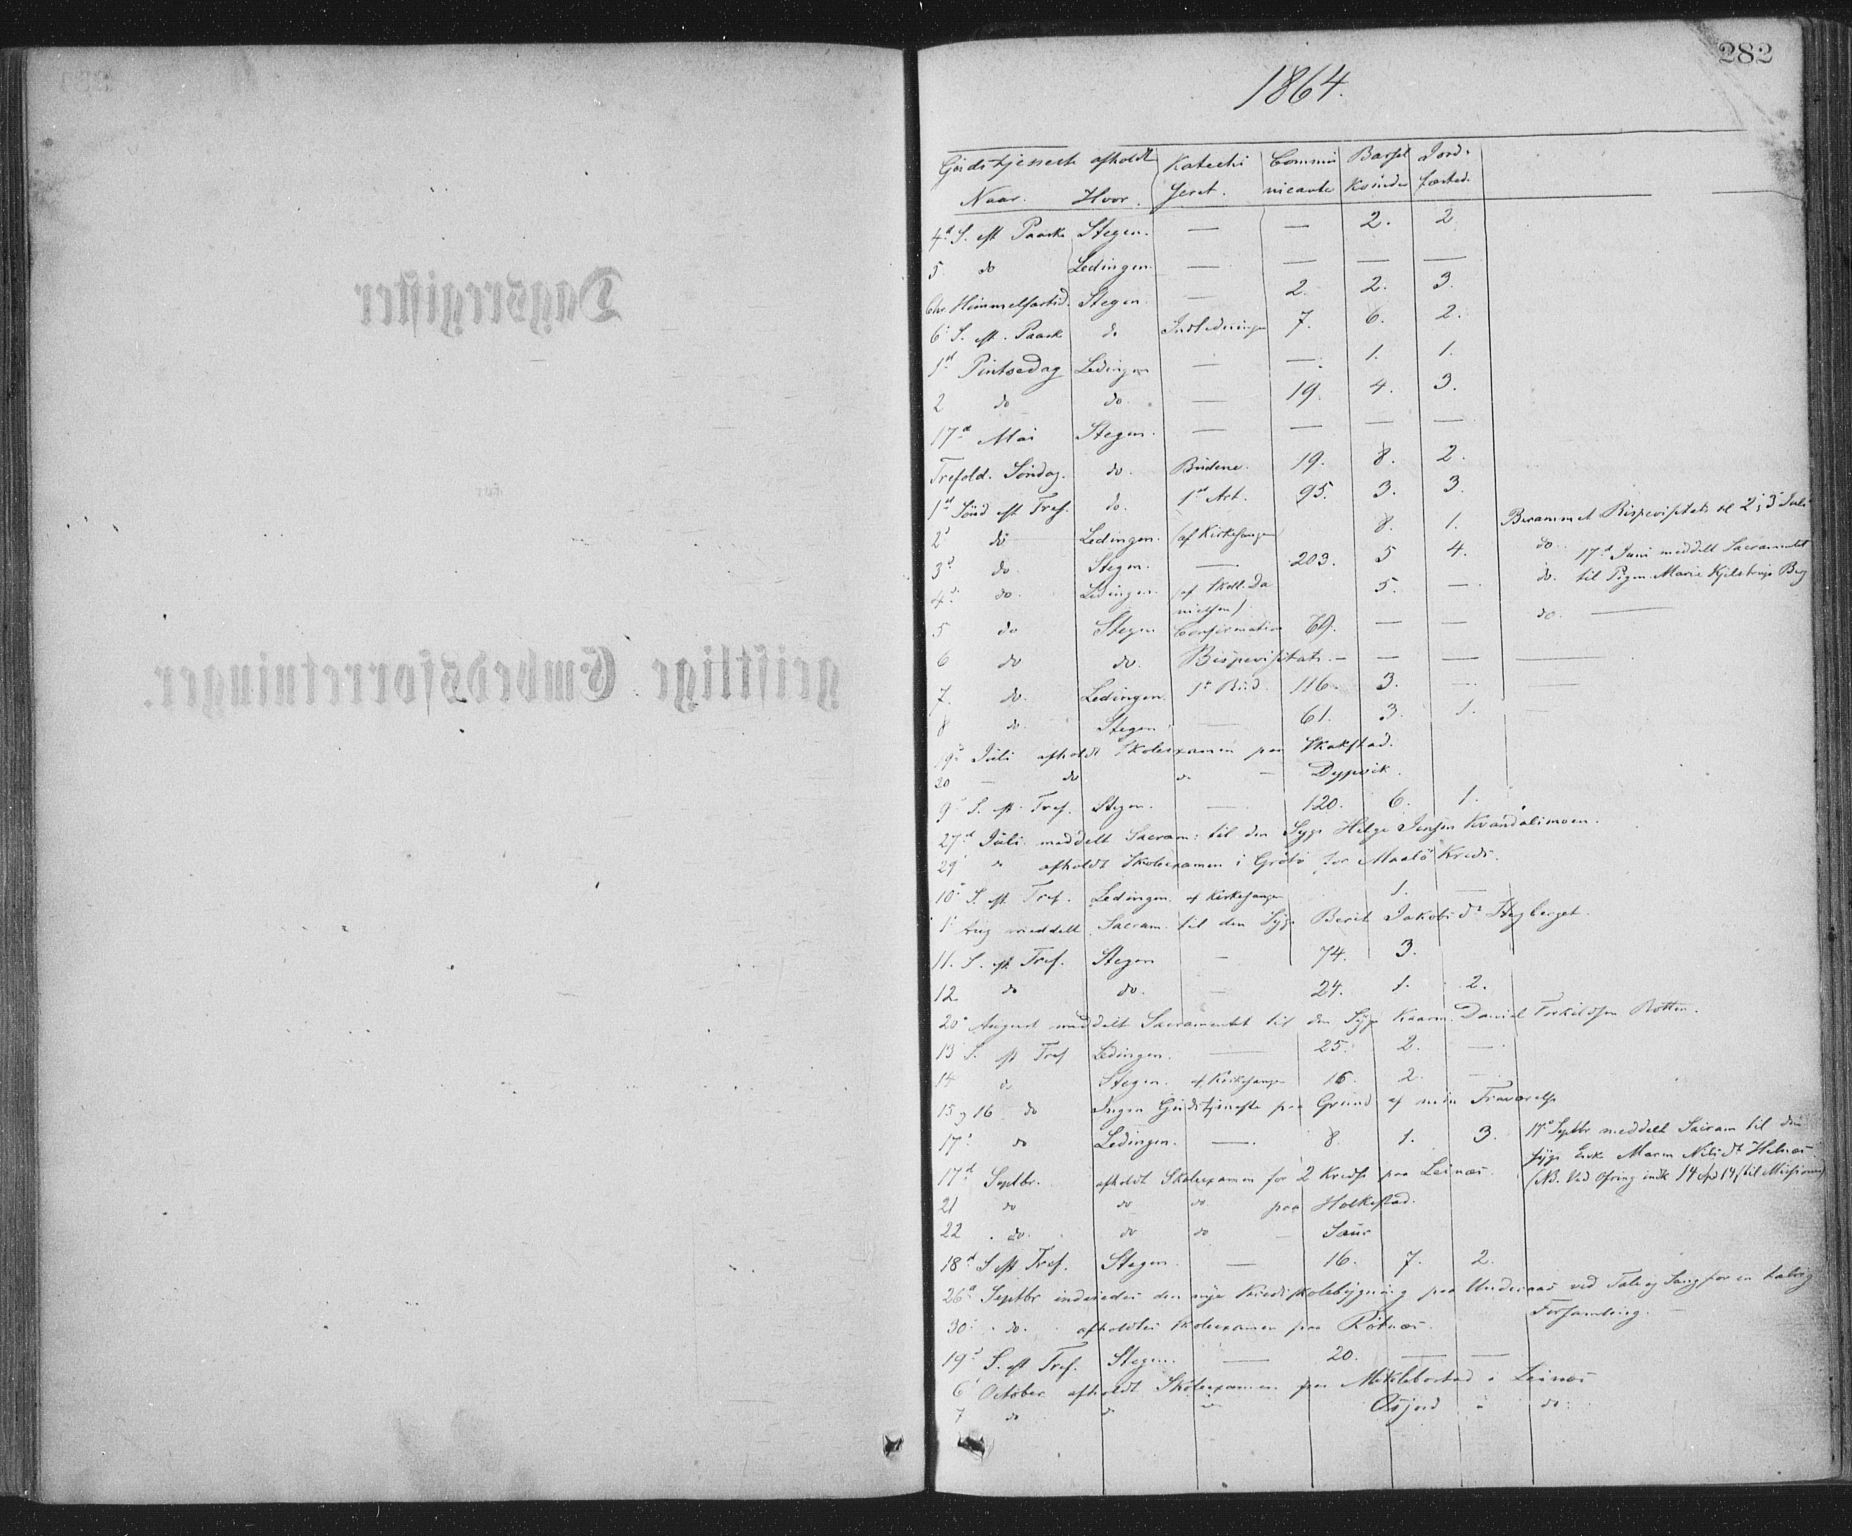 282
1864.
Gudstjeneste afholdt Katechi Commu Barsel Jord-
Naar. Hvor. seret. nicante Kvinder fæsted.
4d S. eft Paaske Stegen. — — 2. 2
5. do Ledingen. — — — —
Chr. Himmelfartsd. Stegen. — 2. 2. 3.
6 S. eft. Paask do Indledningen 7. 6. 2.
1st Pintsedag Ledingen — — 1. 1.
2 do do. — 19. 4. 3.
17d Mai Stegen. — — — —
Trefold. Søndag. do. Budene. 19. 8. 2.
1st Sønd eft Tref. do. 1st Art. 95. 3. 3.
2d do Ledingen. (af Kirkesanger 8. 1. Berammet Bispevisitats til 2 & 3 Juli
3d do. Stegen. — 203. 5 4. do. 17d Juni meddelt Sacramentet
4d do. Ledingen. (af Skoll. Da 5. — do. til Pigen Marie Kjelstrup Berg
nielsen).
5 do Stegen Confirmation 69. — — do. —
6 do do. Bispevisitats. — — — —
7. do. Ledingen. 1st Bud. 116. 3. — —
8 do. Stegen — 61. 3. 1. —
19d Juli afholdt Skoleexamen paa Skakstad.
20 — do do — Dypvik.
9d S. eft. Tref. Stegen. — 120. 6. 1.
27d Juli meddelt Sacram: til den Syge Helge Jensen Kvandalimoen.
29 " afholdt Skoleexamen i Grøtø for Maalø Kreds.
10d S. eft. Tref. Ledingen. af Kirkesanger 1. —
1 Aug meddelt Sacram. til den Syge Berit Jakobsdr. Hagberget.
11. S. eft Tref. Stegen — 74. 3.
12 do do. — 24. 1. 2.
20d August meddelt Sacramentet til den Syge Kaarm. Daniel Torkildsen Rotten.
13 S. eft Tref Ledingen. — 25. 2. —
14 do Stegen. af Kirkesanger 16. 2. —
15 og 16 do Ingen Gudstjeneste paa Grund af min Fraværelse
17d do Ledingen. — 8. 1. 3. 17d Septbr meddelt Sacram til den
syge Enke Maren Nilsdr. Helnæs
17d Septbr. afholdt Skoleexamen for 2 Kredse paa Leinæs. (NB. Ved Ofring indk 14 Spd 14 ß til Missionen)
21 do do do paa Holkestad.
22 do. do do — Saur
18d S eft Tref. Stegen. — 16. 7. 2.
26d Septbr indviedes den nye Kredsskolebygning paa Undernæs ved Tale og Sang for en talrig
Forsamling. —
30 do. afholdtes Skoleexamen paa Røtnæs.
19d S. eft Tref. Stegen. — 20. — —
6 October afholdt Skoleexamen paa Miklebostad i Leinæs
7 do do do Aasjord i do.